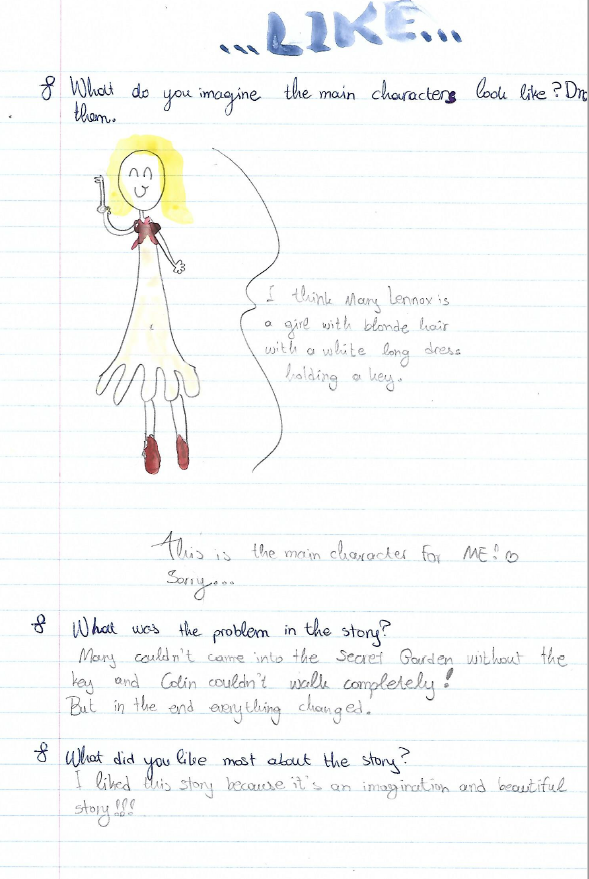 ...LIKE...
What do you imagine the main characters look like? Dr
them.
I think Mary Lennox is
a girl with blonde hair
with a white long dress
holding a key.
This is the main character for ME!
Sorry...
What was the problem in the story?
Mary couldn't come into the Secret Garden without the
key and Colin couldn't walk completely!
But in the end everything changed.
What did you like most about the story?
I liked this story because it's an imagination and beautiful
story!!!